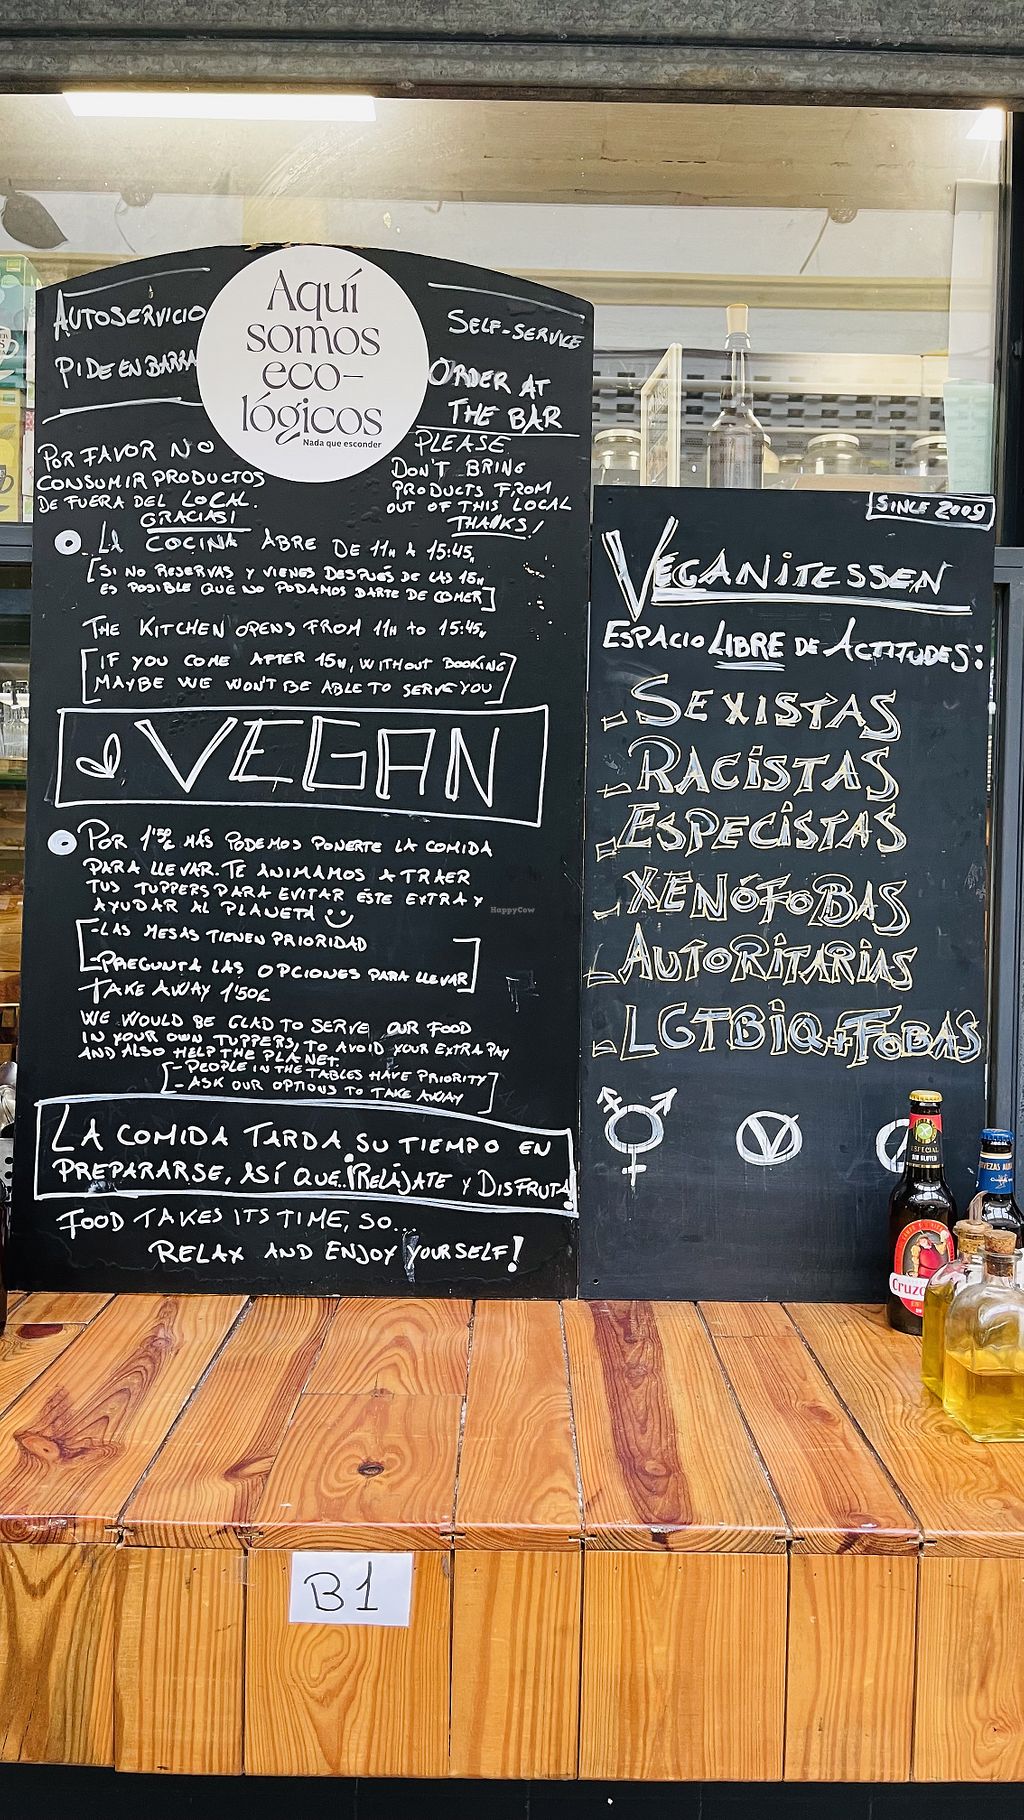 Aquí
somos
eco-
lógicos
Nada que esconder
AUTOSERVICIO
PIDE EN BARRA
SELF-SERVICE
ORDER AT
THE BAR
POR FAVOR NO
CONSUMIR PRODUCTOS
DE FUERA DEL LOCAL.
GRACIAS!
PLEASE
DON'T BRING
PRODUCTS FROM
OUT OF THIS LOCAL
THANKS!
LA COCINA ABRE DE 11H A 15:45H
[SI NO RESERVAS Y VIENES DESPUÉS DE LAS 15H
ES POSIBLE QUE NO PODAMOS DARTE DE COMER]
THE KITCHEN OPENS FROM 11H to 15:45H
[IF YOU COME AFTER 15H, WITHOUT BOOKING
MAYBE WE WON'T BE ABLE TO SERVE YOU]
VEGAN
POR 1'50€ MÁS PODEMOS PONERTE LA COMIDA
PARA LLEVAR. TE ANIMAMOS A TRAER
TUS TUPPERS PARA EVITAR ESTE EXTRA Y
AYUDAR AL PLANETA
-LAS MESAS TIENEN PRIORIDAD
-PREGUNTA LAS OPCIONES PARA LLEVAR
TAKE AWAY 1'50€
WE WOULD BE GLAD TO SERVE OUR FOOD
IN YOUR OWN TUPPERS, TO AVOID YOUR EXTRA PAY
AND ALSO HELP THE PLANET.
- PEOPLE IN THE TABLES HAVE PRIORITY
- ASK OUR OPTIONS TO TAKE AWAY
LA COMIDA TARDA SU TIEMPO EN
PREPARARSE, ASÍ QUE... ¡RELÁJATE Y DISFRUTA!
FOOD TAKES ITS TIME, SO...
RELAX AND ENJOY YOURSELF!
SINCE 2009
VEGANITESSEN
ESPACIO LIBRE DE ACTITUDES:
- SEXISTAS
- RACISTAS
- ESPECISTAS
- XENÓFOBAS
- AUTORITARIAS
- LGTBIQ+FOBAS
V
ESPECIAL
SIN GLUTEN
Cruzc
HappyCow
B1